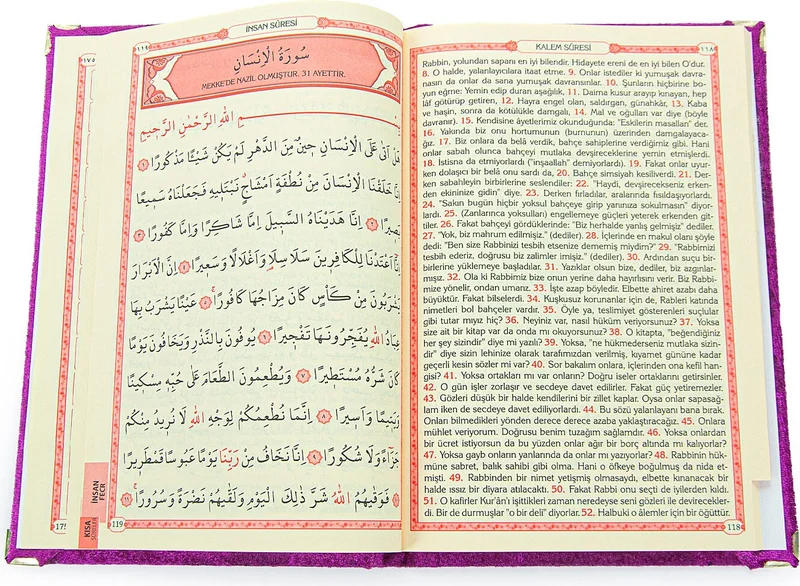 ١١٩
İNSAN SÛRESİ
سُورَةُ الْاِنْسَانِ
MEKKE'DE NAZİL OLMUŞTUR. 31 AYETTİR.
بِسْمِ اللهِ الرَّحْمٰنِ الرَّحِيمِ
هَلْ اَتٰى عَلَى الْاِنْسَانِ حِينٌ مِنَ الدَّهْرِ لَمْ يَكُنْ شَيْئًا مَذْكُورًا ﴿١﴾
اِنَّا خَلَقْنَا الْاِنْسَانَ مِنْ نُطْفَةٍ اَمْشَاجٍ نَبْتَلِيهِ فَجَعَلْنَاهُ سَمِيعًا
بَصِيرًا ﴿٢﴾ اِنَّا هَدَيْنَاهُ السَّبِيلَ اِمَّا شَاكِرًا وَاِمَّا كَفُورًا ﴿٣﴾
اِنَّا اَعْتَدْنَا لِلْكَافِرِينَ سَلَاسِلَا وَاَغْلَالًا وَسَعِيرًا ﴿٤﴾ اِنَّ الْاَبْرَارَ
يَشْرَبُونَ مِنْ كَأْسٍ كَانَ مِزَاجُهَا كَافُورًا ﴿٥﴾ عَيْنًا يَشْرَبُ بِهَا
عِبَادُ اللهِ يُفَجِّرُونَهَا تَفْجِيرًا ﴿٦﴾ يُوفُونَ بِالنَّذْرِ وَيَخَافُونَ يَوْمًا
كَانَ شَرُّهُ مُسْتَطِيرًا ﴿٧﴾ وَيُطْعِمُونَ الطَّعَامَ عَلٰى حُبِّهِ مِسْكِينًا
وَيَتِيمًا وَاَسِيرًا ﴿٨﴾ اِنَّمَا نُطْعِمُكُمْ لِوَجْهِ اللهِ لَا نُرِيدُ مِنْكُمْ
جَزَاءً وَلَا شُكُورًا ﴿٩﴾ اِنَّا نَخَافُ مِنْ رَبِّنَا يَوْمًا عَبُوسًا قَمْطَرِيرًا ﴿١٠﴾
فَوَقٰيهُمُ اللهُ شَرَّ ذٰلِكَ الْيَوْمِ وَلَقّٰيهُمْ نَضْرَةً وَسُرُورًا ﴿١١﴾
119
١٧٥
175
KISA SÛRELER
İNSAN
FECR
KALEM SÛRESİ
١١٨
Rabbin, yolundan sapanı en iyi bilendir. Hidayete ereni de en iyi bilen O'dur.
8. O halde, yalanlayıcılara itaat etme. 9. Onlar istediler ki yumuşak davra-
nasın da onlar da sana yumuşak davransınlar. 10. Şunların hiçbirine bo-
yun eğme: Yemin edip duran aşağılık, 11. Daima kusur arayıp kınayan, hep
lâf götürüp getiren, 12. Hayra engel olan, saldırgan, günahkâr, 13. Kaba
ve haşin, sonra da kötülükle damgalı, 14. Mal ve oğulları var diye (böyle
davranır). 15. Kendisine âyetlerimiz okunduğunda: "Eskilerin masalları" der.
16. Yakında biz onu hortumunun (burnunun) üzerinden damgalayaca-
ğız. 17. Biz onlara da belâ verdik, bahçe sahiplerine verdiğimiz gibi. Hani
onlar sabah olunca bahçeyi mutlaka devşireceklerine yemin etmişlerdi.
18. İstisna da etmiyorlardı ("inşaallah" demiyorlardı). 19. Fakat onlar uyur-
ken dolaşıcı bir belâ onu sardı da, 20. Bahçe simsiyah kesiliverdi. 21. Der-
ken sabahleyin birbirlerine seslendiler: 22. "Haydi, devşirecekseniz erken-
den ekininize gidin" diye. 23. Derken fırladılar, aralarında fısıldaşıyorlardı.
24. "Sakın bugün hiçbir yoksul bahçeye girip yanınıza sokulmasın" diyor-
lardı. 25. (Zanlarınca yoksulları) engellemeye güçleri yeterek erkenden git-
tiler. 26. Fakat bahçeyi gördüklerinde: "Biz herhalde yanlış gelmişiz" dediler.
27. "Yok, biz mahrum edilmişiz." (dediler). 28. İçlerinde en makul olanı şöyle
dedi: "Ben size Rabbinizi tesbih etsenize dememiş miydim?" 29. "Rabbimizi
tesbih ederiz, doğrusu biz zalimler imişiz." (dediler). 30. Ardından suçu bir-
birlerine yüklemeye başladılar. 31. Yazıklar olsun bize, dediler, biz azgınlar-
mışız. 32. Ola ki Rabbimiz bize onun yerine daha hayırlısını verir. Biz Rabbi-
mize yönelir, ondan umarız. 33. İşte azap böyledir. Elbette ahiret azabı daha
büyüktür. Fakat bilselerdi. 34. Kuşkusuz korunanlar için de, Rableri katında
nimetleri bol bahçeler vardır. 35. Öyle ya, teslimiyet gösterenleri suçlular
gibi tutar mıyız hiç? 36. Neyiniz var, nasıl hüküm veriyorsunuz? 37. Yoksa
size ait bir kitap var da onda mı okuyorsunuz? 38. O kitapta, "beğendiğiniz
her şey sizindir" diye mi yazılı? 39. Yoksa, "ne hükmederseniz mutlaka sizin-
dir" diye sizin lehinize olarak tarafımızdan verilmiş, kıyamet gününe kadar
geçerli kesin sözler mi var? 40. Sor bakalım onlara, içlerinden ona kefil han-
gisi? 41. Yoksa ortakları mı var onların? Doğru iseler ortaklarını getirsinler.
42. O gün işler zorlaşır ve secdeye davet edilirler. Fakat güç yetiremezler.
43. Gözleri düşük bir halde kendilerini bir zillet kaplar. Oysa onlar sapasağ-
lam iken de secdeye davet ediliyorlardı. 44. Bu sözü yalanlayanı bana bırak.
Onları bilmedikleri yönden derece derece azaba yaklaştıracağız. 45. Onlara
mühlet veriyorum. Doğrusu benim tuzağım sağlamdır. 46. Yoksa onlardan
bir ücret istiyorsun da bu yüzden onlar ağır bir borç altında mı kalıyorlar?
47. Yoksa gayb onların yanlarında da onlar mı yazıyorlar? 48. Rabbinin hük-
müne sabret, balık sahibi gibi olma. Hani o öfkeye boğulmuş da nida et-
mişti. 49. Rabbinden bir nimet yetişmiş olmasaydı, elbette kınanacak bir
halde ıssız bir diyara atılacaktı. 50. Fakat Rabbi onu seçti de iyilerden kıldı.
51. O kafirler Kur'an'ı işittikleri zaman neredeyse seni gözleri ile devirecekler-
di. Bir de durmuşlar "o bir deli" diyorlar. 52. Halbuki o âlemler için bir öğüttür.
118